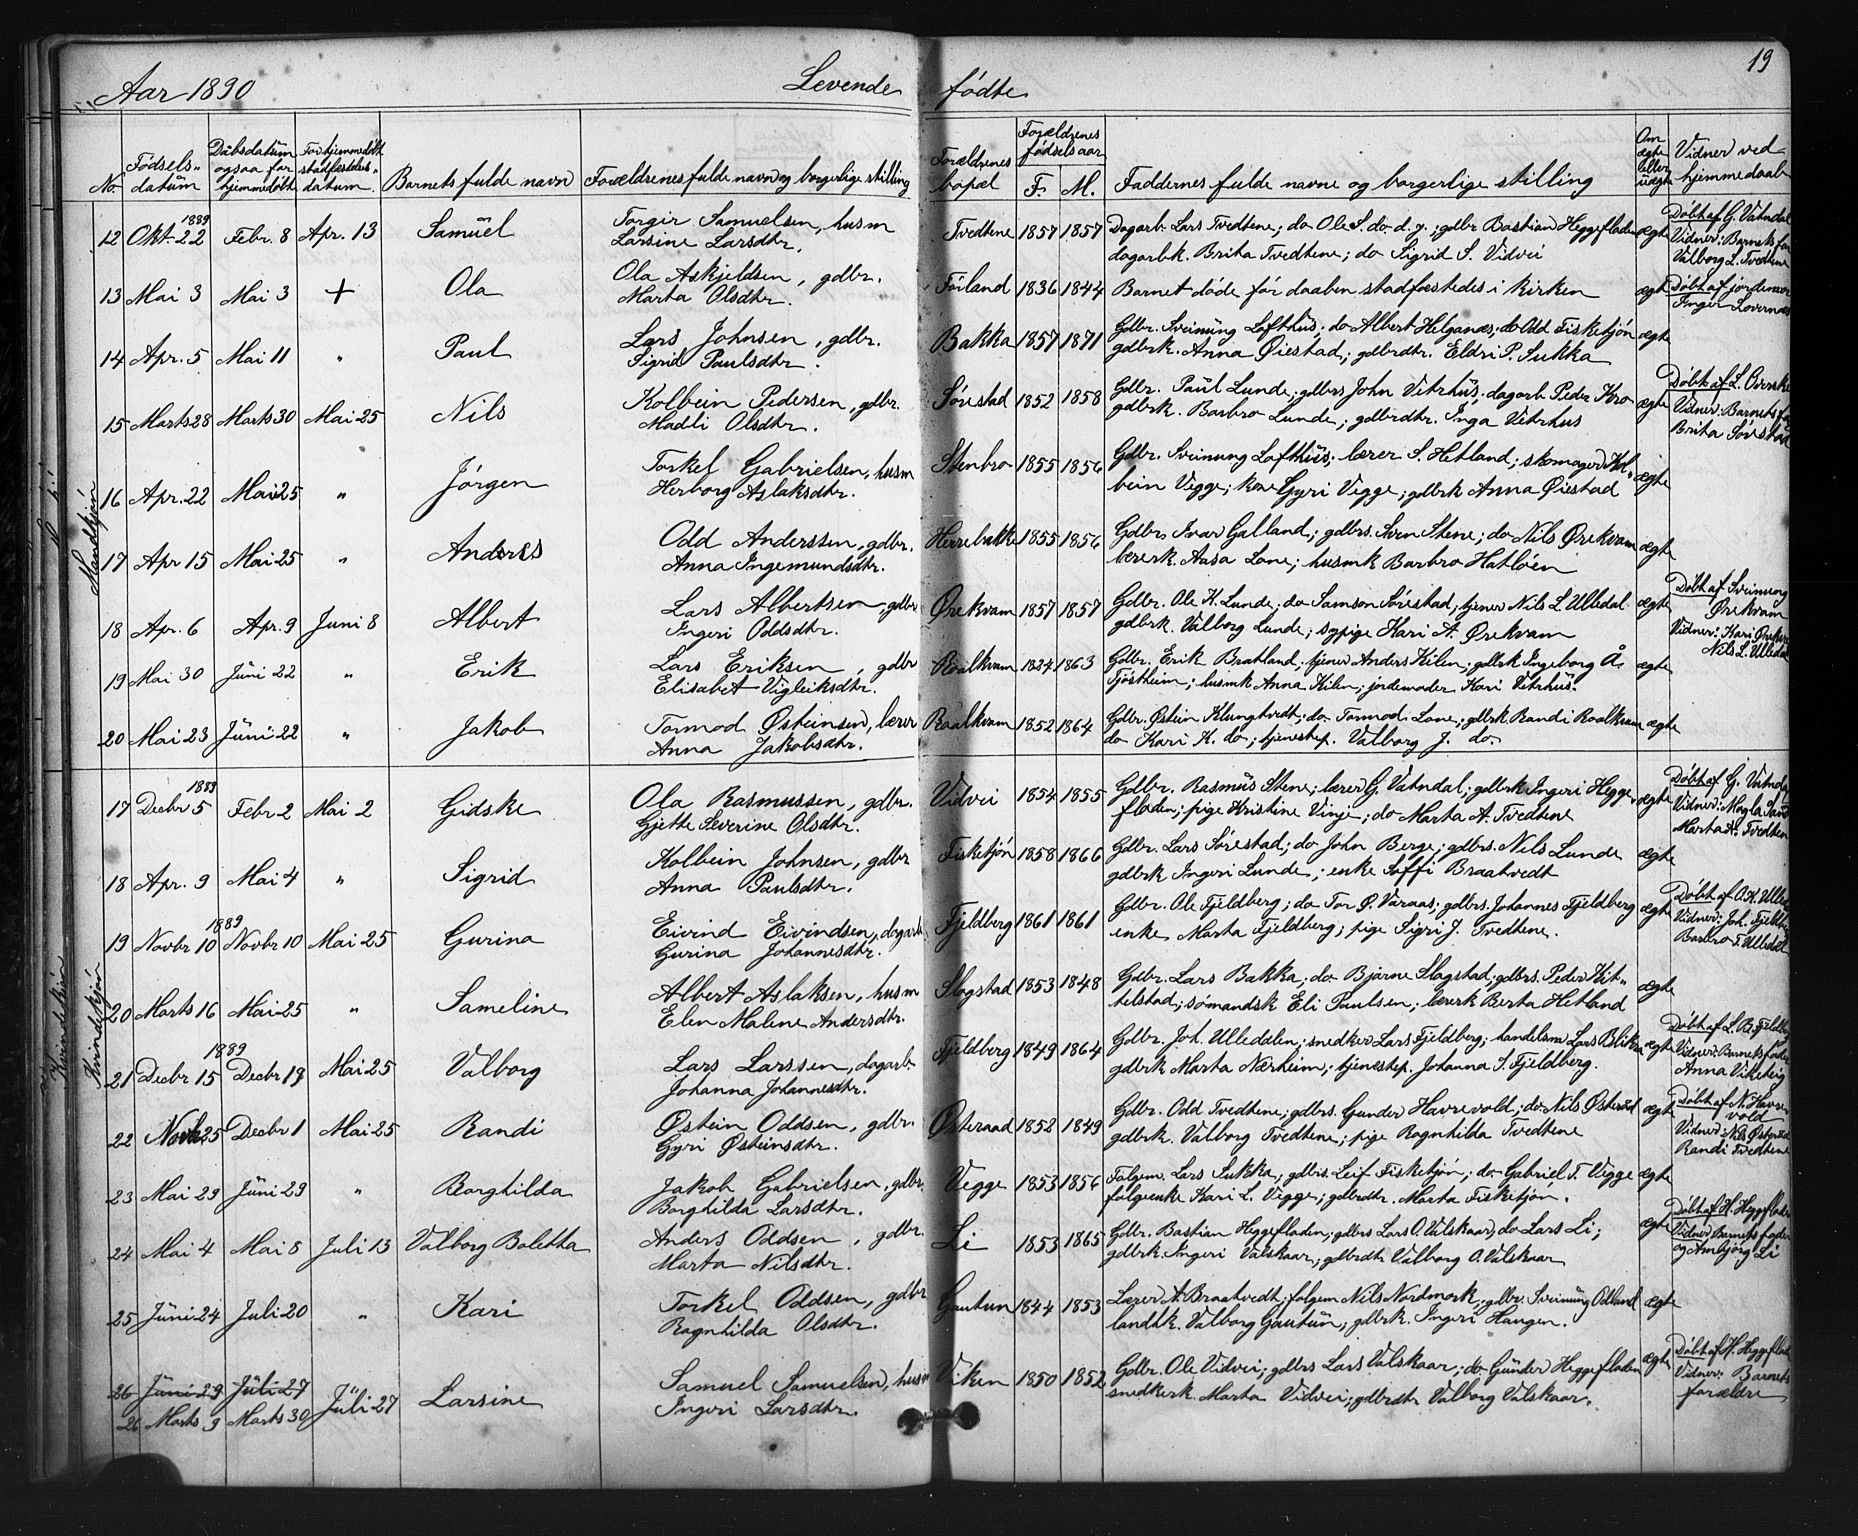 Aar 1890 Levende fødte 19
No. Fødsels-datum Daabsdatum ogsaa for hjemmedøbt For hjemmedøbt stadfæstelses-datum Barnets fulde navn Forældrenes fulde navn og borgerlige stilling Forældrenes bopæl Forældrenes fødselsaar F. M. Faddernes fulde navne og borgerlige stilling Om ægte eller uægte Vidner ved hjemmedaab
Mandkjøn
12 1889 Okt. 22 Febr. 8 Apr. 13 Samuel Torgir Samuelsen, husm Tvedtene 1857 1857 Dagarb. Lars Tvedtene; do Ole S. do d. y.; gdbr Bastian Heggefladen ægte Døbt af G. Vatndal
Larsine Larsdtr. dagarbk. Brita Tvedtene; do Sigrid S. Vidvei Vidner: Barnets far
Valborg L. Tvedtene
13 Mai 3 Mai 3 + Ola Ola Askjeldsen, gdbr. Føiland 1836 1844 Barnet døde før daaben stadfæstedes i kirken ægte Døbt af jordemor
Marta Olsdtr. Inger Lovernæs
14 Apr. 5 Mai 11 " Paul Lars Johnsen, gdbr. Bakka 1857 1871 Gdbr. Sveinung Lofthus; do Albert Helganæs; do Odd Fisketjøn ægte
Sigrid Paulsdtr. gdbrk. Anna Øiestad; gdbrdtr. Eldri P. Sukka
15 Marts 28 Marts 30 Mai 25 Nils Kolbein Pedersen, gdbr. Sørestad 1852 1858 Gdbr. Paul Lunde; gdbrs John Vetrhus; dagarb Peder Kro ægte Døbt af L.
Madli Olsdtr. gdbrk. Barbro Lunde; gdbrdtr. Inga Vetrhus Vidner: Barnets far
Brita Sørestad
16 Apr. 22 Mai 25 " Jørgen Torkel Gabrielsen, husm Stenbro 1855 1856 Gdbr. Sveinung Lofthus; lærer S. Hetland; skomager Kol- ægte
Herborg Aslaksdtr. bein Vegge; kone Gyri Vegge; gdbrk Anna Øiestad
17 Apr 15 Mai 25 " Anders Odd Anderssen, gdbr. Herrebakke 1855 1856 Gdbr. Ivar Galland; gdbrs. Sven Stene; do Nils Ørekvam ægte
Anna Ingemundsdtr. lærerk. Aasa Lone; husmk Barbro Hatløen
18 Apr. 6 Apr. 9 Juni 8 Albert Lars Albertsen, gdbr Ørekvam 1857 1857 Gdbr. Ole K. Lunde; do Samson Sørestad; tjener Nils L. Ulledal ægte Døbt af Sveinung
Ørekvam
Ingeri Oddsdtr. gdbrk. Valborg Lunde; sypige Kari A. Ørekvam Vidner: Kari Ørekvam
Nils L. Ulledal
19 Mai 30 Juni 22 " Erik Lars Eriksen, gdbr Roalkvam 1824 1863 Gdbr. Erik Bratland; tjener Anders Kilen; gdbrk Ingeborg Å. ægte
Elisabet Vigleiksdtr. Tjøstheim; husmk Anna Kilen; jordemoder Kari Vetrhus.
20 Mai 23 Juni 22 " Jakob Tormod Østeinsen, lærer Roalkvam 1852 1864 Gdbr. Østein Klungtvedt; do Tormod Lone; gdbrk Randi Roalkvam ægte
Anna Jakobsdtr. do Kari K. do; tjenestep. Valborg J. do.
Kvindekjøn
17 1889 Decbr 5 Febr 2 Mai 2 Gidske Ola Rasmussen, gdbr. Vidvei 1854 1855 Gdbr. Rasmus Stene; lærer G. Vatndal; gdbrk Ingeri Hegge- ægte Døbt af G. Vatndal
Gjette Severine Olsdtr. fladen; pige Kristine Vinje; do Marta A. Tvedtene Vidner: Magla Sand
Marta A. Tvedten
18 Apr. 9 Mai 4 " Sigrid Kolbein Johnsen, gdbr Fisketjøn 1858 1866 Gdbr. Lars Sørestad; do John Berge; gdbrs. Nils Lunde ægte
Anna Paulsdtr. gdbrk Ingeri Lunde; enke Soffi Braatvedt
19 1889 Novbr 10 Novbr 10 Mai 25 Gurina Eivind Eivindsen, dagarb Fjeldberg 1861 1861 Gdbr. Ole Fjeldberg; do Tor Ø. Varaas; gdbrs. Johannes Fjeldberg ægte Døbt af O. K. Ulle
Gurina Johannesdtr. enke Marta Fjeldberg; pige Sigri J. Tvedtene. Vidner: Joh. Fjeldbe
Barbro T. Ulledal
20 Marts 16 Mai 25 " Sameline Albert Aslaksen, husm Slogstad 1853 1848 Gdbr. Lars Bakka; do Bjarne Slagstad; gdbrs. Peder Kit- ægte
Elen Malene Andersdtr. telstad; sømandsk Eli Paulsen; lærerk Berta Hetland
21 1889 Decbr 15 Decbr 19 Mai 25 Valborg Lars Larssen, dagarb. Fjeldberg 1849 1864 Gdbr. Joh. Ulledalen; snedker Lars Fjeldberg; handelsm Lars Bleskr ægte Døbt af L. B. Fjeldbe
Johanna Johannesdtr. gdbrk Marta Nærheim; tjenestep. Johanna S. Fjeldberg. Vidner: Barnets fader
Anna Vikeheig
22 Novbr 25 Decbr 1 Mai 25 Randi Østein Oddsen, gdbr. Østeraad 1852 1849 Gdbr. Odd Tvedtene; gdbrs. Gunder Havrevold; do Nils Østeraad ægte Døbt af N. Havre-
vold
Gyri Østeinsdtr. gdbrk. Valborg Tvedtene; pige Ragnhilda Tvedtene Vidner: Nils Østeraad
Randi Tvedtene
23 Mai 29 Juni 29 " Borghilda Jakob Gabrielsen, gdbr. Vegge 1853 1856 Følgem. Lars Sukka; gdbrs. Leif Fisketjøn; do Gabriel T. Vegge ægte
Borghilda Larsdtr. følgeenke Kari L. Vegge; gdbrdtr. Marta Fisketjøn.
24 Mai 4 Mai 8 Juli 13 Valborg Boletha Anders Oddsen, gdbr. Li 1853 1865 Gdbr. Bastian Heggefladen; gdbrs Lars O. Valskaar; do Lars Li; ægte Døbt af H. Heggeflade
Marta Nilsdtr. gdbrk. Ingeri Valskaar; gdbrdtr Valborg O. Valskaar Vidner: Barnets fader
og Ambjørg Li
25 Juni 24 Juli 20 " Kari Torkel Oddsen, gdbr Gautun 1844 1853 Lærer A. Braatvedt; følgem Nils Nordmork; gdbr. Sveinung Odland ægte
Ragnhilda Olsdtr. landhk. Valborg Gautun; gdbrk. Ingeri Haugen.
26 Juni 29 Juli 27 Samuel Samuelsen, husm Viken 1850 1852 Gdbr. Ole Vidvei; gdbrs Lars Valskaar; do Gunder Heggefladen ægte Døbt af H. Heggeflad
26 Marts 9 Marts 30 Juli 27 Larsine Ingeri Larsdtr. snedkerk. Marta Vidvei; gdbrdtr Valborg Valskaar. Vidner: Barnets
forældre